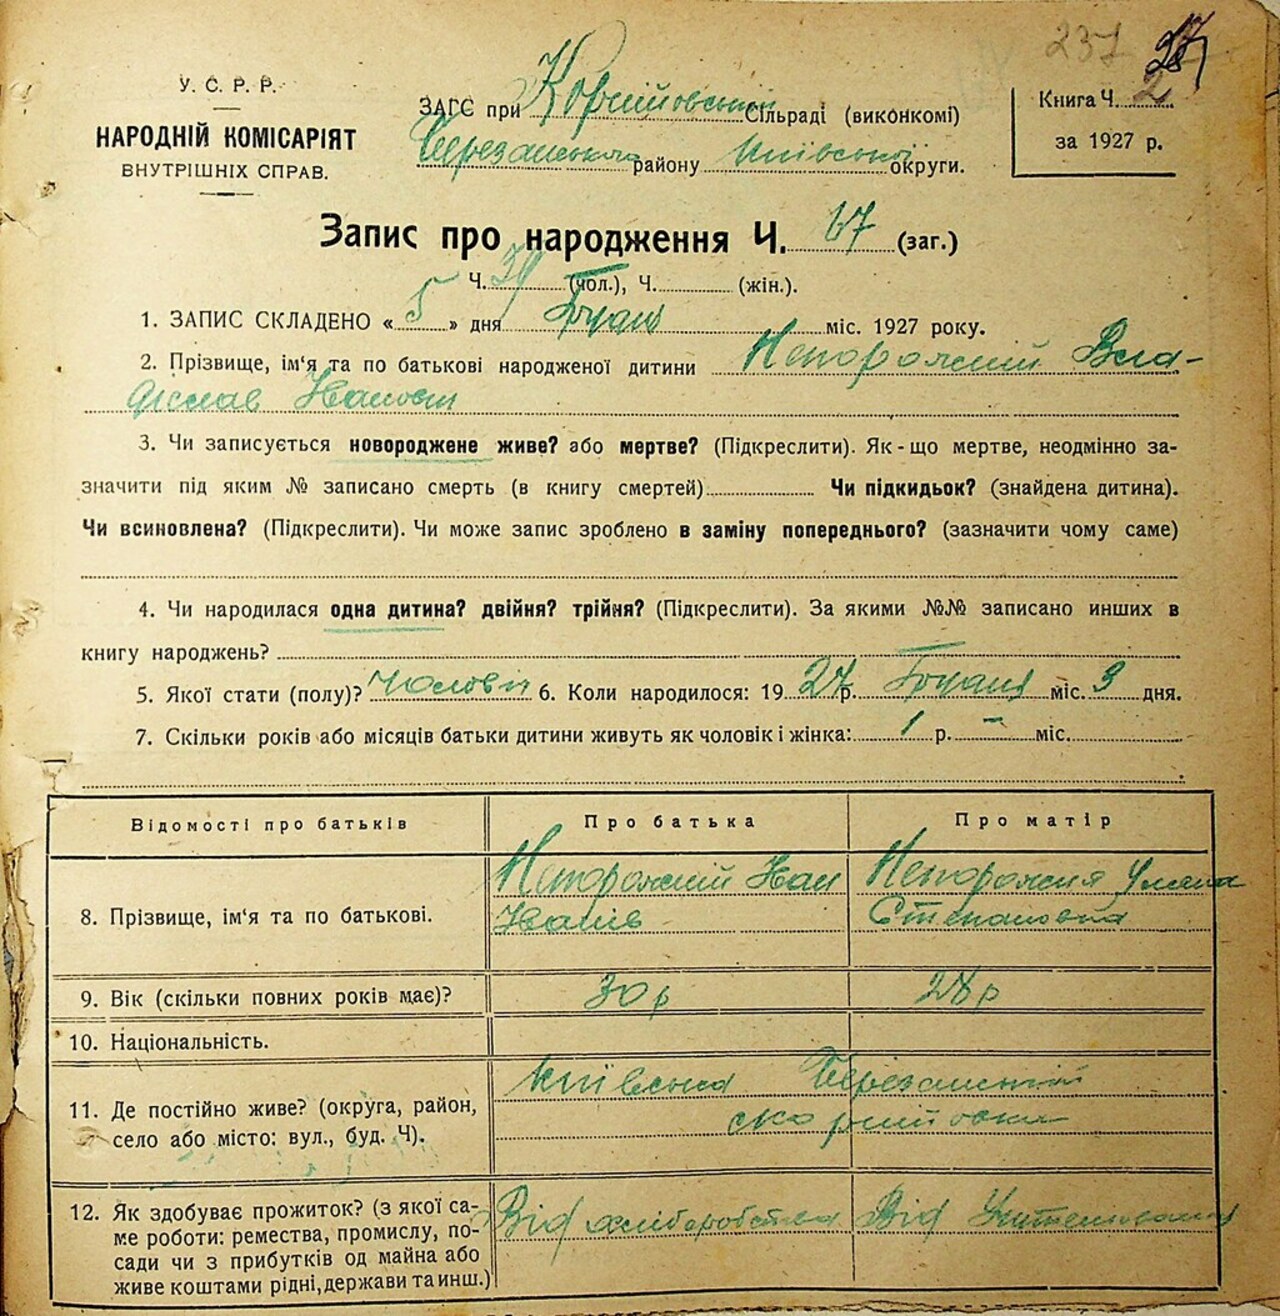 237 27
У. С. Р. Р.
НАРОДНІЙ КОМІСАРІЯТ
ВНУТРІШНІХ СПРАВ.
ЗАГС при Корніївській Сільраді (виконкомі)
Березанського району Київської округи.
Книга Ч. 2
за 1927 р.
Запис про народження Ч. 67 (заг.)
Ч. 39 (чол.), Ч. (жін.).
1. ЗАПИС СКЛАДЕНО «5» дня Грудня міс. 1927 року.
2. Прізвище, ім‘я та по батькові народженої дитини Непорожний Вла-
діслав Іванович
3. Чи записується новороджене живе? або мертве? (Підкреслити). Як-що мертве, неодмінно за-
значити під яким № записано смерть (в книгу смертей) Чи підкидьок? (знайдена дитина).
Чи всиновлена? (Підкреслити). Чи може запис зроблено в заміну попереднього? (зазначити чому саме)
4. Чи народилася одна дитина? двійня? трійня? (Підкреслити). За якими №№ записано инших в
книгу народжень?
5. Якої стати (полу)? Чоловіч 6. Коли народилося: 1927 р. Грудня міс. 3 дня.
7. Скільки років або місяців батьки дитини живуть як чоловік і жінка: 1 р. – міс.
Відомості про батьків Про батька Про матір
8. Прізвище, ім‘я та по батькові. Непорожний Іван Непорожня Уляна
Іванів Степановна
9. Вік (скільки повних років має)? 30 р 28 р
10. Національність.
11. Де постійно живе? (округа, район,
село або місто: вул., буд. Ч). Київська Березанський
с Корніївка
12. Як здобуває прожиток? (з якої са-
ме роботи: ремества, промислу, по-
сади чи з прибутків од майна або
живе коштами рідні, держави та инш.) Від хліборобства Від Учителювання